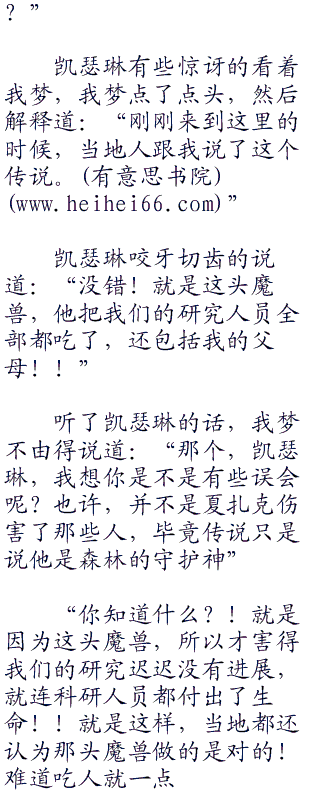 ？”
凯瑟琳有些惊讶的看着
我梦，我梦点了点头，然后
解释道：“刚刚来到这里的
时候，当地人跟我说了这个
传说。(有意思书院)
(www.heihei66.com)”
凯瑟琳咬牙切齿的说
道：“没错！就是这头魔
兽，他把我们的研究人员全
部都吃了，还包括我的父
母！！”
听了凯瑟琳的话，我梦
不由得说道：“那个，凯瑟
琳，我想你是不是有些误会
呢？也许，并不是夏扎克伤
害了那些人，毕竟传说只是
说他是森林的守护神”
“你知道什么？！就是
因为这头魔兽，所以才害得
我们的研究迟迟没有进展，
就连科研人员都付出了生
命！！就是这样，当地都还
认为那头魔兽做的是对的！
难道吃人就一点